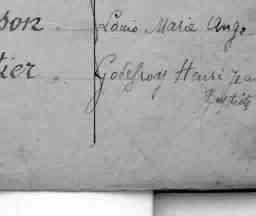 son . Louis Marie Ange
tier . Godefroy Henri Jean
Baptiste